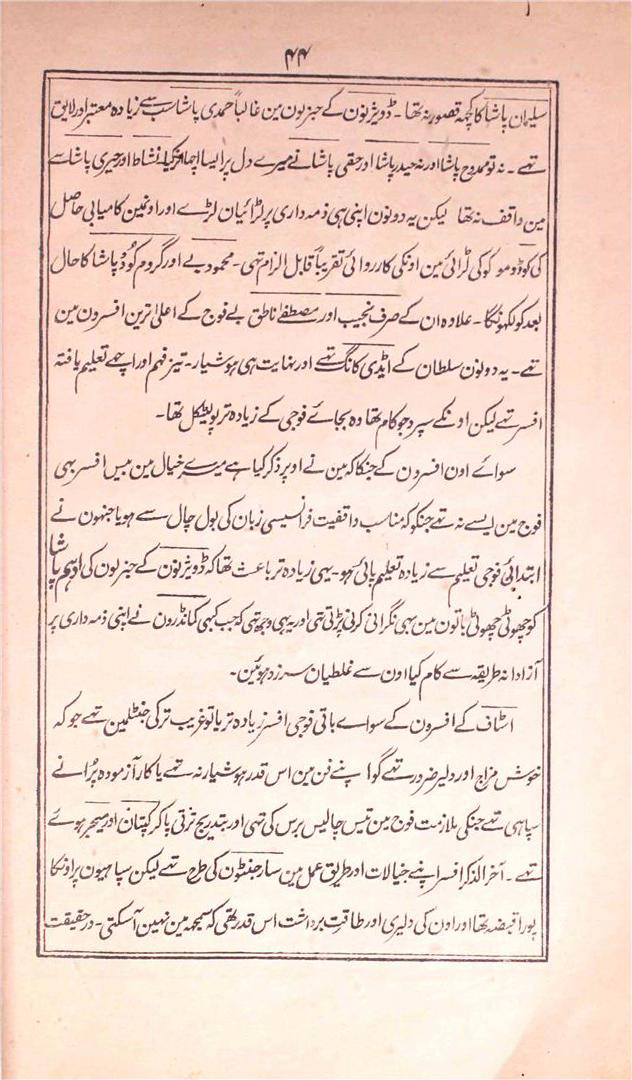 ۴۴
سلیمان پاشا کا کچہہ قصور نہ تھا ۔ ڈویژنون کے جنرلون مین غالباً حمدی پاشا سب سے زیادہ معتبر اور لایق
تہے ۔ نہ تو ممدوح پاشا اور نہ حیدر پاشا اور حقی پاشا نے میرے دل پر ایسا اچھا اثر کیا ۔ نشاط اور خیری پاشا سے
مین واقف نہ تھا لیکن یہ دونون اپنی ہی ذمہ داری پر لڑائیان لڑے اور اونمین کامیابی حاصل
کی ڈومو کو کی لڑائی مین اونکی کارروائی تقریباً قابل الزام تہی ۔ محمود بے اور گروم کوُڈ پاشا کا حال
بعد کو لکھونگا ۔ علاوہ ان کے صرف نجیب اور مصطفےٰ ناطق بے فوج کے اعلیٰ ترین افسرون مین
تہے ۔ یہ دونون سلطان کے ایڈی کانگ تہے اور نہایت ہی ہوشیار ۔ تیز فہم اور اچھے تعلیم یافتہ
افسر تہے لیکن اونکے سپرد جو کام تھا وہ بجائے فوجی کے زیادہ تر پولٹیکل تھا ۔
سوائے اون افسرون کے جنکا کہ مین نے اوپر ذکر کیا ہے میرے خیال مین بیس افسر بہی
فوج مین ایسے نہ تہے جنکو کہ مناسب واقفیت فرانسیسی زبان کی بول چال سے ہو یا جنہون نے
ابتدائی فوجی تعلیم سے زیادہ تعلیم پائی ہو ۔ یہی زیادہ تر باعث تھا کہ ڈویژنون کے جنرلون کی ادہم پاشا
کو چھوٹی چھوٹی باتون مین بہی نگرانی کرنی پڑتی تہی اور یہ ہی وجہ تہی کہ جب کبہی کمانڈرون نے اپنی ذمہ داری پر
آزادانہ طریقہ سے کام کیا اون سے غلطیان سرزد ہوئین ۔
اسٹاف کے افسرون کے سوا ے باقی فوجی افسر زیادہ تر یا تو غریب ترکی جنٹلمین تہے جو کہ
خوش مزاج اور دلیر ضرور تہے گو اپنے فن مین اس قدر ہوشیار نہ تہے یا کار آزمودہ پُرانے
سپاہی تہے جنکی ملازمت فوج مین تیس چالیس برس کی تہی اور بتدریج ترقی پا کر کپتان اور میجر ہوے
تہے ۔ آخر الذکر افسر اپنے خیالات اور طریق عمل مین سارجنٹون کی طرح تہے لیکن سپاہیون پر اونکا
پورا قبضہ تھا اور اون کی دلیری اور طاقت برداشت اس قدر تھی کہ سمجہہ مین نہین آسکتی ۔ درحقیقت